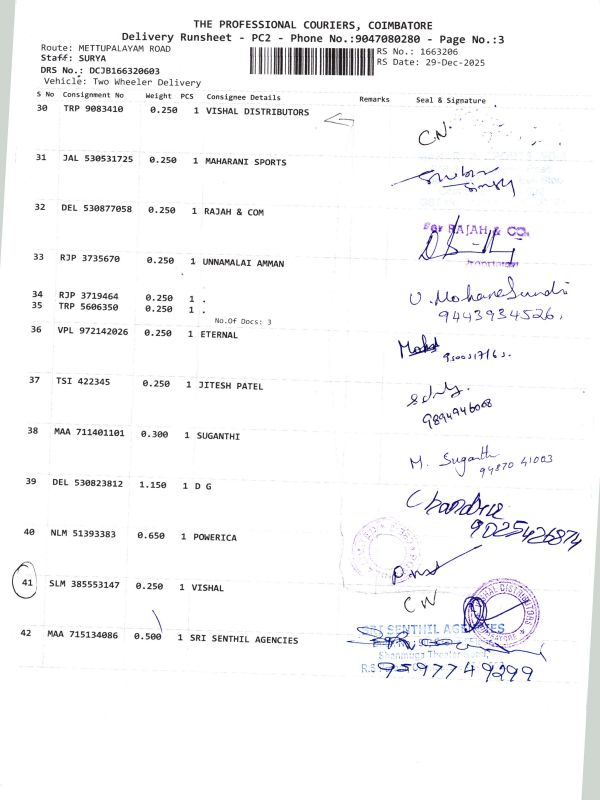 THE PROFESSIONAL COURIERS, COIMBATORE
Delivery Runsheet - PC2 - Phone No.:9047080280 - Page No.:3
Route: METTUPALAYAM ROAD RS No.: 1663206
Staff: SURYA RS Date: 29-Dec-2025
DRS No.: DCJB166320603
Vehicle: Two Wheeler Delivery
S No Consignment No Weight PCS Consignee Details Remarks Seal & Signature
30 TRP 9083410 0.250 1 VISHAL DISTRIBUTORS
C.N.
31 JAL 530531725 0.250 1 MAHARANI SPORTS
32 DEL 530877058 0.250 1 RAJAH & COM
For RAJAH & CO.
33 RJP 3735670 0.250 1 UNNAMALAI AMMAN
34 RJP 3719464 0.250 1 .
U. MohanaSundri
35 TRP 5606350 0.250 1 .
9443934526.
No.Of Docs: 3
36 VPL 972142026 0.250 1 ETERNAL
37 TSI 422345 0.250 1 JITESH PATEL
9894946008
38 MAA 711401101 0.300 1 SUGANTHI
M. Suganthi
99870 41003
39 DEL 530823812 1.150 1 D G
Chandru
9025426874
40 NLM 51393383 0.650 1 POWERICA
41 SLM 385553147 0.250 1 VISHAL
CN
DISTRIBUTORS
42 MAA 715134086 0.500 1 SRI SENTHIL AGENCIES
SRI SENTHIL AGENCIES
Shanmuga Theater
R.S
9597749299